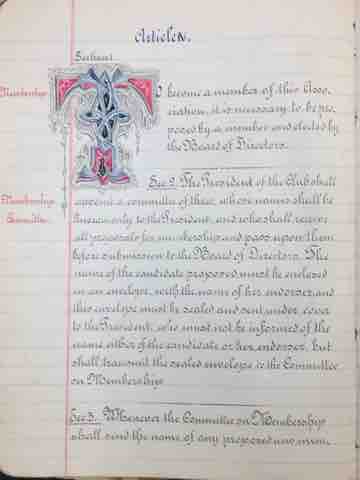 Article
Section 1
Membership
To become a member of this Asso-
ciation, it is necessary to be pro-
posed by a member and elected by
the Board of Directors.
Sec 2. The President of the Club shall
Membership
Committee.
appoint a committee of three, whose names shall be
known only to the President, and who shall receive
all proposals for membership and pass upon them
before submission to the Board of Directors. The
name of the candidate proposed must be enclosed
in an envelope, with the name of her endorser, and
this envelope must be sealed and sent under cover
to the President, who must not be informed of the
name either of the candidate or her endorser, but
shall transmit the sealed envelope to the Committee
on Membership.
Sec 3. Whenever the Committee on Membership
shall send the name of any proposed new mem-